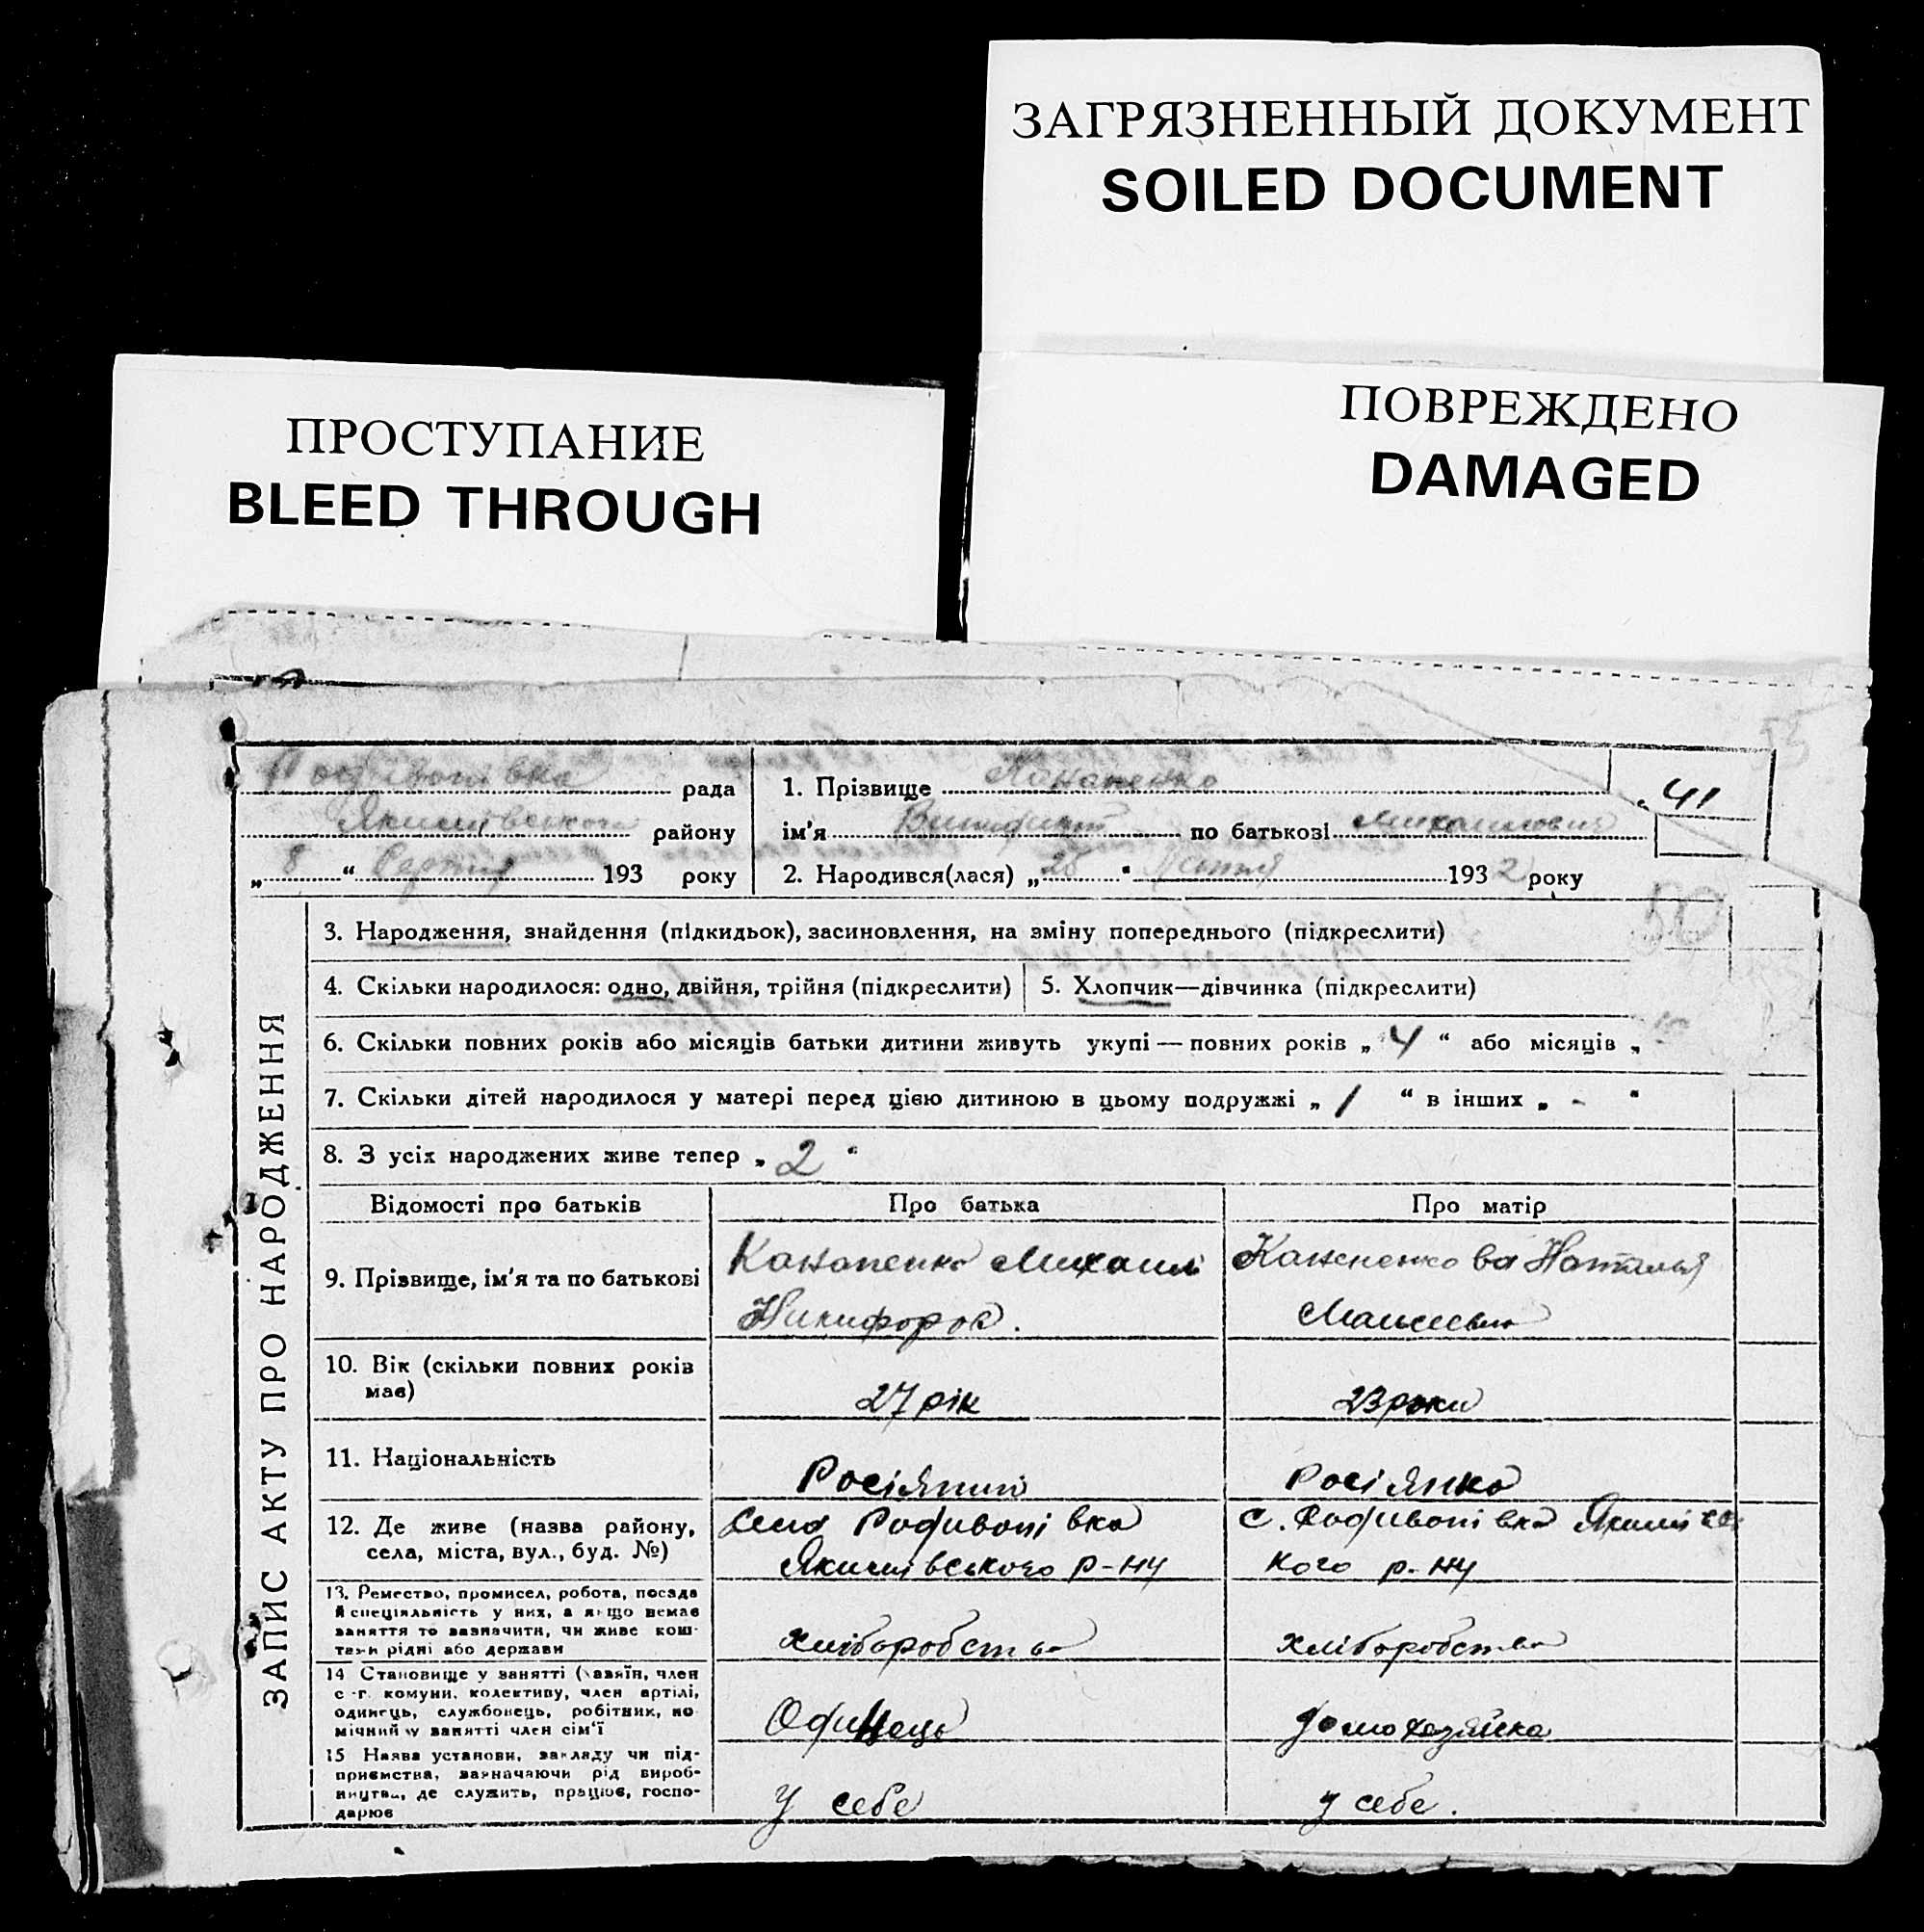 ЗАГРЯЗНЕННЫЙ ДОКУМЕНТ
SOILED DOCUMENT
ПРОСТУПАНИЕ
BLEED THROUGH
ПОВРЕЖДЕНО
DAMAGED
55
рада
району
„ 8 “ 193 року
1. Прізвище
41
ім'я по батькозі
2. Народився(лася) „ “ 1932 року
50
ЗАПИС АКТУ ПРО НАРОДЖЕННЯ
3. Народження, знайдення (підкидьок), засиновлення, на зміну попереднього (підкреслити)
4. Скільки народилося: одно, двійня, трійня (підкреслити)
5. Хлопчик—дівчинка (підкреслити)
6. Скільки повних років або місяців батьки дитини живуть укупі — повних років „ 4 “ або місяців „
7. Скільки дітей народилося у матері перед цією дитиною в цьому подружжі „ 1 “ в інших „ - “
8. З усіх народжених живе тепер „ 2 “
Відомості про батьків
Про батька
Про матір
9. Прізвище, ім'я та по батькові
Михаил
Никифоров.
Наталья
10. Вік (скільки повних років
має)
27 рік
23 роки
11. Національність
Росіянин
Росіянка
12. Де живе (назва району,
села, міста, вул., буд. №)
Село Родивонівка
Якимівського р-ну
с. Родивонівка Якимівсь
кого р-ну
13. Ремество, промисел, робота, посада
й спеціяльність у них, а якщо немає
заняття то зазначити, чи живе кош-
тами рідні або держави
хліборобство
хліборобство
14 Становище у занятті (хазяїн, член
с-г. комуни, колективу, член артілі,
одинець, службовець, робітник, по
мічний у занятті член сім'ї
Одинець
домохозяйка
15 Назва установи, закладу чи під-
приємства, зазначаючи рід вироб-
ництва, де служить, працює, госпо-
дарює
у себе
у себе.